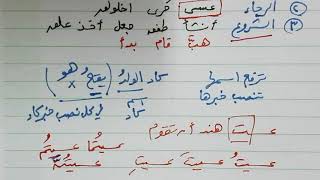 ② الرجاء عسى حرى اخلولق
③ الشروع أنشأ طفق جعل أخذ علق
هبّ قام بدأ
ترفع اسمها
تنصب خبرها
كاد الولدُ (يقعُ هو)
اسم كاد
في محل نصب خبر كاد
عست هند أن تقوم
عسيتُ عسيتَ عسيتِ
عسيتما عسيتم
عسيتنّ